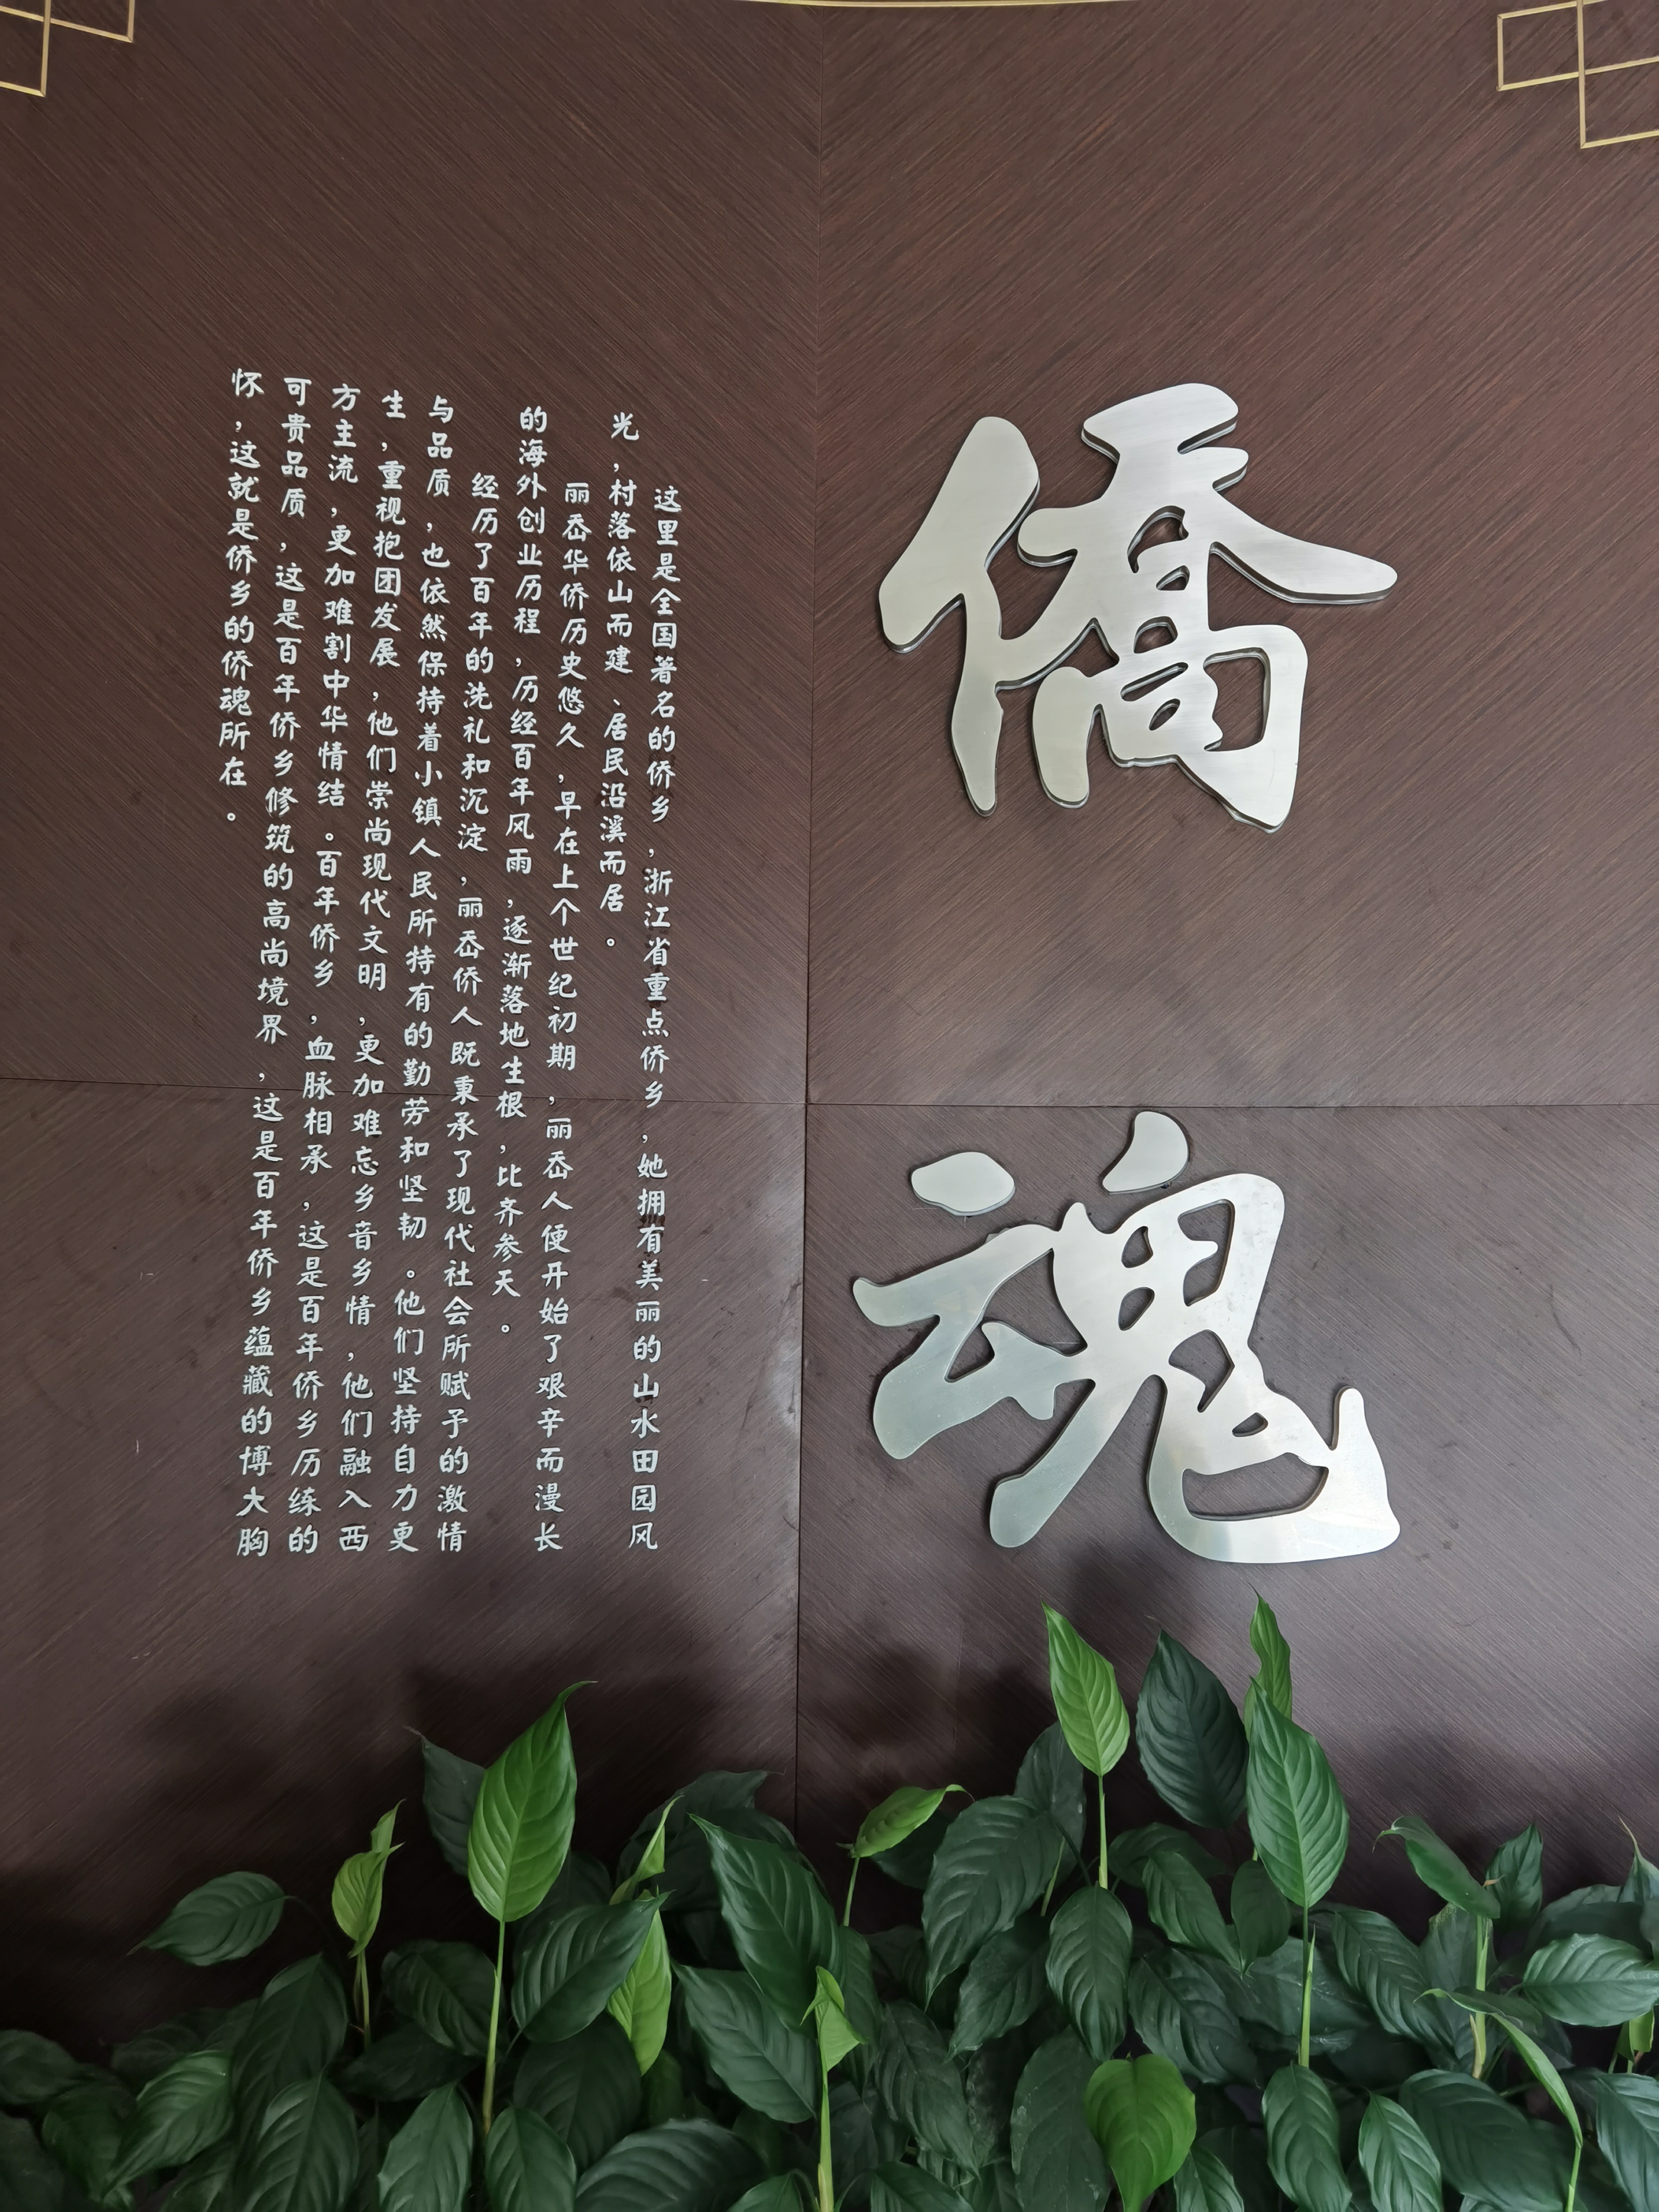 僑魂
这里是全国著名的侨乡，浙江省重点侨乡，她拥有美丽的山水田园风
光，村落依山而建、居民沿溪而居。
丽岙华侨历史悠久，早在上个世纪初期，丽岙人便开始了艰辛而漫长
的海外创业历程，历经百年风雨，逐渐落地生根，比齐参天。
经历了百年的洗礼和沉淀，丽岙侨人既秉承了现代社会所赋予的激情
与品质，也依然保持着小镇人民所持有的勤劳和坚韧。他们坚持自力更
生，重视抱团发展，他们崇尚现代文明，更加难忘乡音乡情，他们融入西
方主流，更加难割中华情结。百年侨乡，血脉相承，这是百年侨乡历练的
可贵品质，这是百年侨乡修筑的高尚境界，这是百年侨乡蕴藏的博大胸
怀，这就是侨乡的侨魂所在。